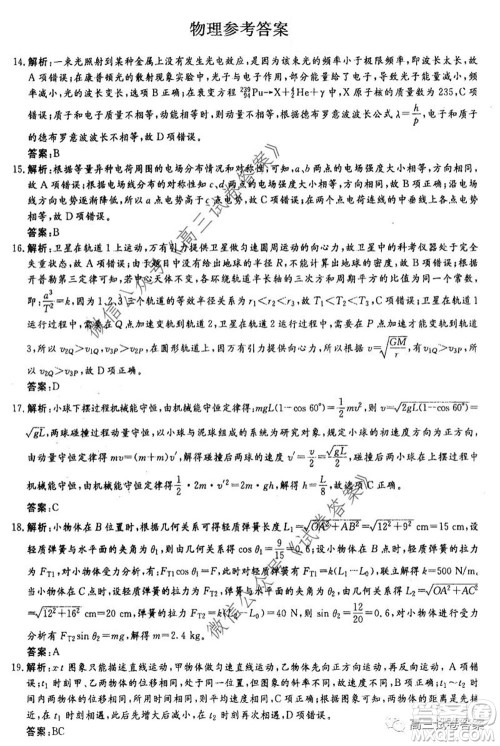 物理参考答案
14. 解析：一束光照射到某种金属上没有发生光电效应，是因为该束光的频率小于极限频率，即波长太长，故
A 项错误；在康普顿光的散射现象实验中，光子与电子作用，部分能量给了电子，散射光子能量减小，频率
减小，光的波长变长，选项 B 正确；在衰变方程 ²³⁹₉₄Pu→X+⁴₂He+γ 中，X 原子核的质量数为 235，C 项
错误；质子和电子质量不相等，动能相等时，则动量不相等，由德布罗意波波长公式 λ=h/p，电子和质子
的德布罗意波波长不相等，故 D 项错误。
答案：B
15. 解析：根据等量异种电荷周围的电场分布情况和对称性；可知，a、b 两点的电场强度大小相等，方向相同，
故 A 项错误；根据电场线分布的对称性知 c、d 两点的电场强度大小相等，方向相同，故 B 项正确；沿电场
线方向电势逐渐降低，所以 a 点电势高于 c 点电势，故 C 项错误；在两个点电荷连线的中垂线上，电势处
处相等，故 D 项错误。
答案：B
16. 解析：卫星在轨道 1 上运动，万有引力提供卫星做匀速圆周运动的向心力，故卫星中的科考仪器处于完全
失重状态，故 A 项错误；由于题目中没有给出地球的半径 R，不能计算出地球的密度，故 B 项错误；根据
开普勒第三定律可知，若中心天体不变，各环绕轨道半长轴的三次方和周期平方的比值为同一个常数，
即：a³/T²=k，因为 1、2、3 三个轨道的等效半径关系为 r₁<r₂<r₃，故 T₁<T₂<T₃，C 项错误；卫星在轨道 1
运行过程中，需要在 Q 点加速才能变轨到轨道 2，卫星在轨道 2 运行过程中，需要在 P 点加速才能变轨到轨道
3，所以 v₂Q>v₁Q，v₃P>v₂P，在圆形轨道上，因为万有引力提供向心力，所以根据 v=√(GM/r) 有，v₁Q>v₃P，
所以 v₂Q>v₁Q>v₃P>v₂P，故 D 项正确。
答案：D
17. 解析：小球下摆过程机械能守恒，由机械能守恒定律得：mgL(1−cos 60°)=½mv²，则 v=√(2gL(1−cos 60°))=
√gL，两球碰撞过程动量守恒，以小球与泥球组成的系统为研究对象，规定小球的初速度方向为正方向，
由动量守恒定律得 mv=(m+m)v′，解得碰后两球的速度为：v′=v/2=√gL/2，碰后两球上摆过程机械能守
恒，由机械能守恒定律得 ½·2m·v′²=2m·gh，解得 h=L/8，故选项 C 正确。
答案：C
18. 解析：小物体在 B 位置时，根据几何关系可得轻质弹簧长度 L₁=√(OA²+AB²)=√(12²+9²) cm=15 cm，设
轻质弹簧与水平面的夹角为 θ₁，则由几何关系得 cos θ₁=9/15=0.6；设小物体在 B 点时，轻质弹簧的拉力
为 FT1，对小物体受力分析，有：FT1cos θ₁=F，由胡克定律得：FT1=k(L₁−L₀)，联立解得 k=500 N/m，
当小物体在 C 点时，轻质弹簧的拉力为 FT2，轻质弹簧与水平面的夹角为 θ₂，轻质弹簧的长度 L₂=√(OA²+AC²)=
√(12²+16²) cm=20 cm，弹簧的拉力为 FT2=k(L₂−L₀)=40 N，则 sin θ₂=12/20=0.6，对小物体进行受力
分析有 FT2sin θ₂=mg，解得 m=2.4 kg。
答案：A
19. 解析：x-t 图象只能描述直线运动，甲物体做匀速直线运动，乙物体先向正方向运动，后向负方向运动，A 项
错误；t₁ 时刻甲、乙两物体的位移相同，所以甲、乙两物体相遇，B 项正确；t₁ 时刻和 t₂ 时刻甲、乙两物体的
位移相同，所以在 t₁～t₂ 时间内两物体的位移相同，所以平均速度相等，C 项正确；t₁～t₂ 时间内某时刻
乙的速度为零，D 项错误。
答案：BC
微信公众号《高三试卷答案》
微信公众号《高三试卷答案》
高三试卷答案